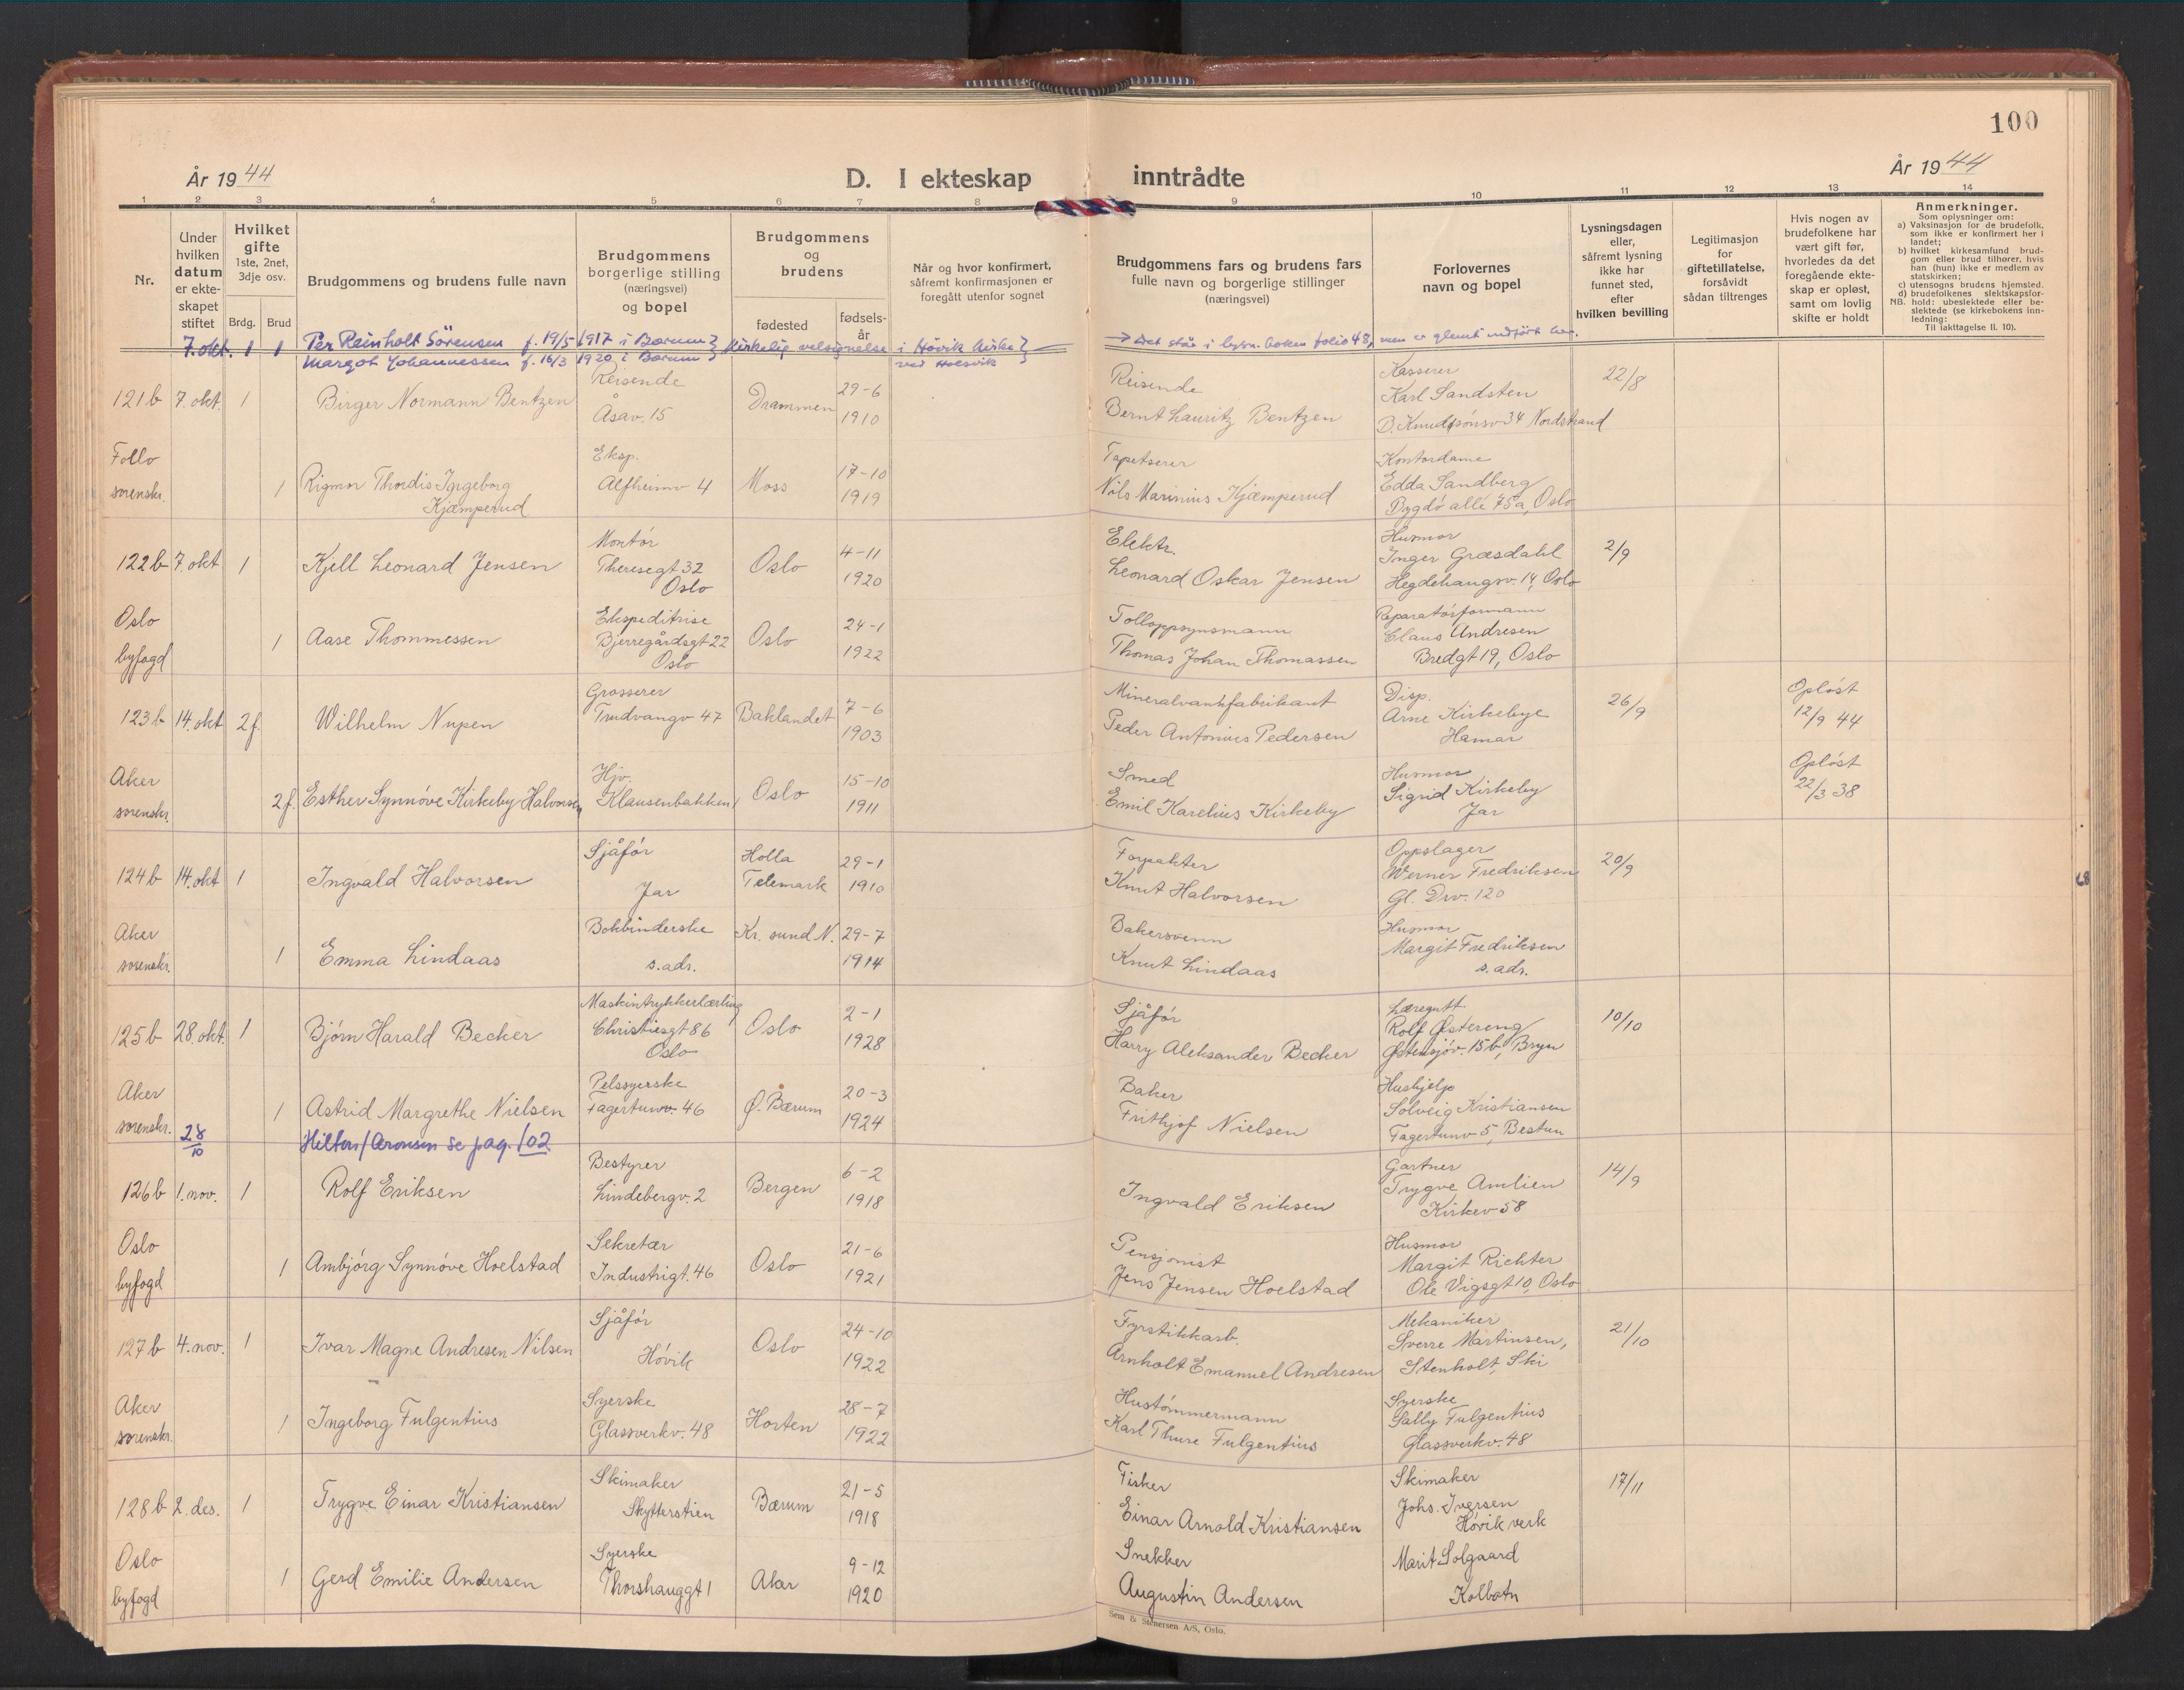 100
År 1944
D. I ekteskap inntrådte
År 1944
1 2 3 4 5 6 7 8 9 10 11 12 13 14
Nr.
Under
hvilken
datum
er ekte-
skapet
stiftet
Hvilket
gifte
1ste, 2net,
3dje osv.
Brdg. Brud
Brudgommens og brudens fulle navn
Brudgommens
borgerlige stilling
(næringsvei)
og bopel
Brudgommens
og
brudens
fødested
fødsels-
år
Når og hvor konfirmert,
såfremt konfirmasjonen er
foregått utenfor sognet
Brudgommens fars og brudens fars
fulle navn og borgerlige stillinger
(næringsvei)
Forlovernes
navn og bopel
Lysningsdagen
eller,
såfremt lysning
ikke har
funnet sted,
efter
hvilken bevilling
Legitimasjon
for
giftetillatelse,
forsåvidt
sådan tiltrenges
Hvis nogen av
brudefolkene har
vært gift før,
hvorledes da det
foregående ekte-
skap er opløst,
samt om lovlig
skifte er holdt
Anmerkninger.
Som oplysninger om:
a) Vaksinasjon for de brudefolk,
som ikke er konfirmert her i
landet;
b) hvilket kirkesamfund brud-
gom eller brud tilhører, hvis
han (hun) ikke er medlem av
statskirken;
c) utensogns brudens hjemsted.
d) brudefolkenes slektskapsfor-
NB. hold: ubeslektede eller be-
slektede (se kirkebokens inn-
ledning:
Til iakttagelse II. 10).
7. okt. 1 1 Per Reinholt Sörensen f. 19/5 1917 i Bærum } Kirkelig velsignelse i Høvik kirke }
Margot Johannessen f. 16/3 1920 i Bærum } ved Holsvik }
→ Det står i lysn. boken folio 48, men er glemt indført her.
121b 7. okt. 1 Birger Normann Bentzen
Reisende
Åsav. 15
Drammen
29-6
1910
Reisende
Bernt Lauritz Bentzen
Kasserer
Karl Sandsten
D. Knudsønsv 34 Nordstrand
22/8
Follo
sorenskr.
1 Rigmor Thordis Ingeborg
Kjæmperud
Eksp.
Alfheimv 4
Moss
17-10
1919
Tapetserer
Nils Marinius Kjæmperud
Kontordame
Edda Sandberg
Bygdö alle 75a, Oslo
122b 7. okt 1 Kjell Leonard Jensen
Montør
Theresegt 32
Oslo
Oslo
4-11
1920
Elektr.
Leonard Oskar Jensen
Husmor
Inger Græsdahl
Hegdehaugsv. 14, Oslo
2/9
Oslo
byfogd
1 Aase Thommessen
Ekspeditrise
Bjerregårdsgt 22
Oslo
Oslo
24-1
1922
Tolloppsynsmann
Thomas Johan Thomassen
Reparatörformann
Claus Andresen
Bredgt 19, Oslo
123b 14. okt 2f. Wilhelm Nupen
Grosserer
Trudvangv 47
Baklandet
7-6
1903
Mineralvannfabrikant
Peder Antonius Pedersen
Disp.
Arne Kirkebye
Hamar
26/9
Opløst
12/9 44
Aker
sorenskr.
2f. Esther Synnöve Kirkeby Halvorsen
Hjv.
Klausenbakken 1
Oslo
15-10
1911
Smed
Emil Karelius Kirkeby
Husmor
Sigrid Kirkeby
Jar
Opløst
22/3 38
124b 14. okt 1 Ingvald Halvorsen
Sjåför
Jar
Holla
Telemark
29-1
1910
Forpakter
Knut Halvorsen
Oppslager
Werner Fredriksen
Gl. Drv. 120
20/9
Aker
sorenskr.
1 Emma Lindaas
Bokbinderske
s. adr.
Kr. sund N.
29-7
1914
Bakersvenn
Knut Lindaas
Husmor
Margit Fredriksen
s. adr.
125b 28. okt. 1 Bjørn Harald Becker
Maskintrykkerlærling
Christiesgt 86
Oslo
Oslo
2-1
1928
Sjåför
Harry Aleksander Becker
Læregutt
Rolf Østereng
Østensjöv. 15b, Bryn
10/10
Aker
sorenskr.
1 Astrid Margrethe Nielsen
Pelssyerske
Fagertunv 46
Ø. Bærum
20-3
1924
Baker
Frithjof Nielsen
Hushjelp
Solveig Kristiansen
Fagertunv 5, Bestun
28/10 Hilton/Aronsen se pag. 102
126b 1. nov. 1 Rolf Eriksen
Bestyrer
Lindebergv. 2
Bergen
6-2
1918
Ingvald Eriksen
Gartner
Trygve Amlien
Kirkev 58
14/9
Oslo
byfogd
1 Ambjörg Synnöve Hoelstad
Sekretær
Industrigt. 46
Oslo
21-6
1921
Pensjonist
Jens Jensen Hoelstad
Husmor
Margit Richter
Ole Vigsgt 10, Oslo
127b 4. nov. 1 Ivar Magne Andresen Nilsen
Sjåför
Hövik
Oslo
24-10
1922
Fyrstikkarb.
Arnholt Emanuel Andresen
Mekaniker
Sverre Martinsen,
Stenholt, Ski
21/10
Aker
sorenskr.
1 Ingeborg Fulgentius
Syerske
Glassverkv. 48
Horten
28-7
1922
Hustömmermann
Karl Thure Fulgentius
Syerske
Sally Fulgentius
Glassverkv. 48
128b 2. des. 1 Trygve Einar Kristiansen
Skimaker
Skytterstien
Bærum
21-5
1918
Fisker
Einar Arnold Kristiansen
Skimaker
Johs. Iversen
Hövik verk
17/11
Oslo
byfogd
1 Gerd Emilie Andersen
Syerske
Thorshauggt 1
Aker
9-12
1920
Snekker
Augustin Andersen
Marit Solgaard
Kolbotn
Sem & Stenersen A/S, Oslo.